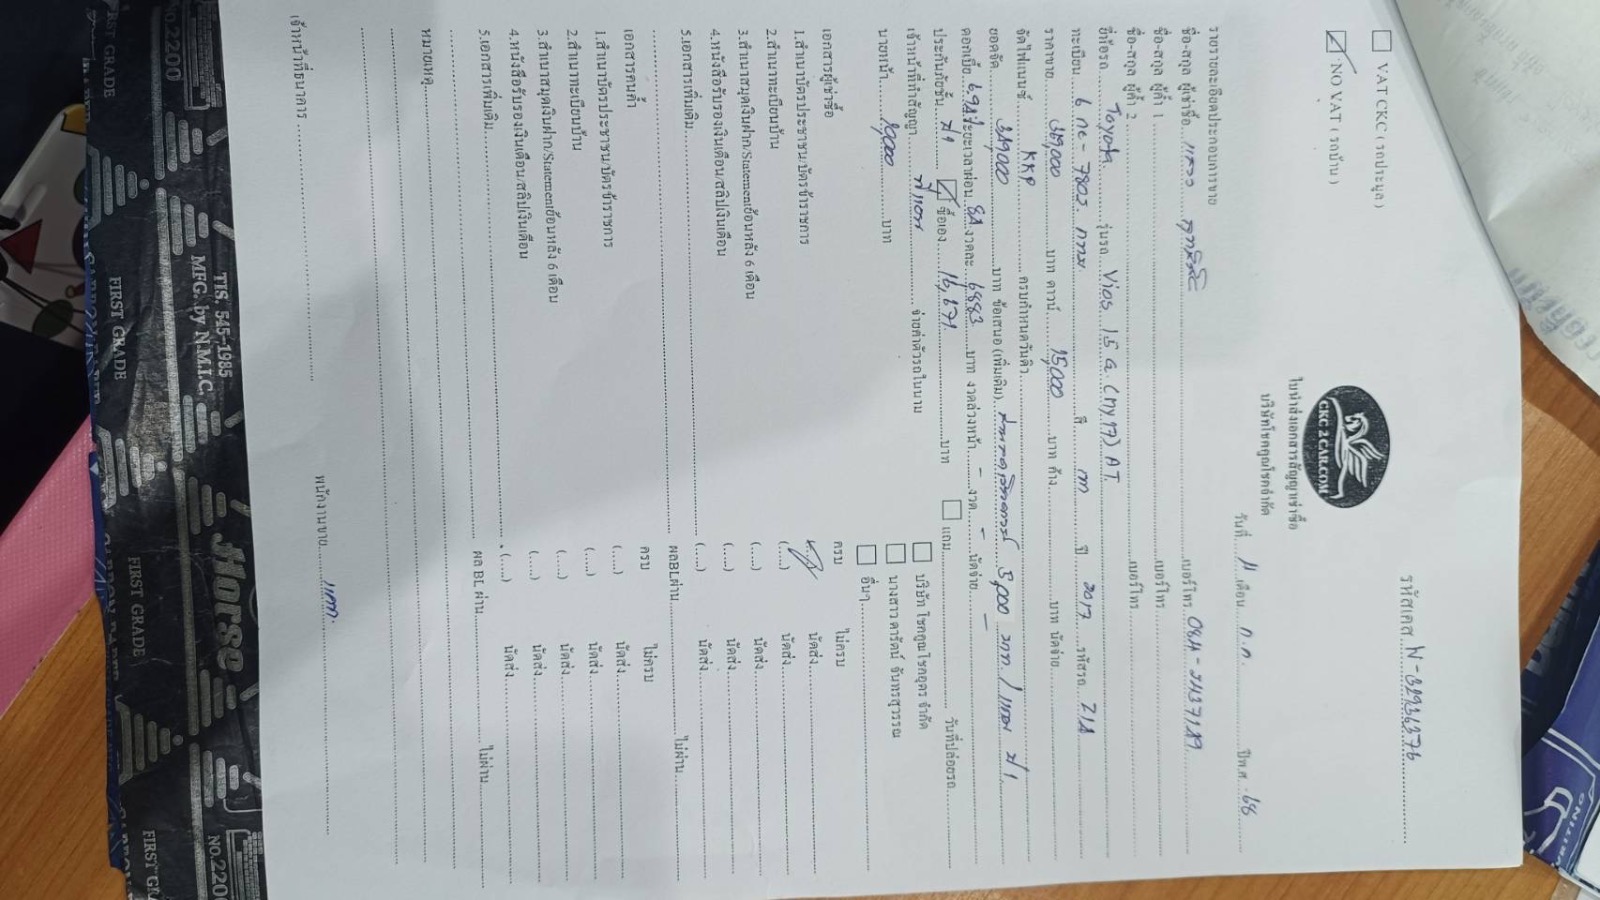 รหัสเคส N-32936376
☐ VAT CKC ( รถประมูล )
☑ NO VAT ( รถบ้าน )
CKC 2CAR.COM
ใบนำส่งเอกสารสัญญาเช่าซื้อ
บริษัทโชคคูณโชคจำกัด
วันที่ 11 เดือน ก.ค. ปีพ.ศ. 68
รายรายละเอียดประกอบการขาย
ชื่อ-สกุล ผู้เช่าซื้อ เบอร์โทร
ชื่อ-สกุล ผู้ค้ำ 1 เบอร์โทร
ชื่อ-สกุล ผู้ค้ำ 2 เบอร์โทร
ยี่ห้อรถ Toyota รุ่นรถ Vios 1.5 G (my17) AT
ทะเบียน 6 กฮ - 7802 กทม สี ปี 2017 รหัสรถ Z18
ราคาขาย 389,000 บาท ดาวน์ 15,000 บาท ค้าง บาท นัดจ่าย
จัดไฟแนนซ์ KKP ครบกำหนดวันคิว
ยอดจัด 389,000 บาท ข้อเสนอ (เพิ่มเติม) 5,000 บาท / แถม ป.1
ดอกเบี้ย ระยะเวลาผ่อน 84 งวดละ 6883 บาท งวดล่วงหน้า - งวด - นัดจ่าย
ประกันภัยชั้น ป1 ☑ ซื้อเอง 16,671 บาท ☐ แถม วันที่ปล่อยรถ
เจ้าหน้าที่ทำสัญญา จ่ายค่าตัวรถในนาม ☐ บริษัท โชคคูณโชคอุดร จำกัด
นายหน้า บาท ☐ นางสาว ดารัตน์ จันทรสุวรรณ
☐ อื่นๆ
เอกสารผู้เช่าซื้อ ครบ ไม่ครบ
1.สำเนาบัตรประชาชน/บัตรข้าราชการ (....) นัดส่ง
2.สำเนาทะเบียนบ้าน (....) นัดส่ง
3.สำเนาสมุดเงินฝาก/Statementย้อนหลัง 6 เดือน (....) นัดส่ง
4.หนังสือรับรองเงินเดือน/สลิปเงินเดือน (....) นัดส่ง
5.เอกสารเพิ่มเติม ผลBLผ่าน ไม่ผ่าน
เอกสารคนค้ำ ครบ ไม่ครบ
1.สำเนาบัตรประชาชน/บัตรข้าราชการ (....) นัดส่ง
2.สำเนาทะเบียนบ้าน (....) นัดส่ง
3.สำเนาสมุดเงินฝาก/Statementย้อนหลัง 6 เดือน (....) นัดส่ง
4.หนังสือรับรองเงินเดือน/สลิปเงินเดือน (....) นัดส่ง
5.เอกสารเพิ่มเติม ผล BL ผ่าน ไม่ผ่าน
หมายเหตุ
เจ้าหน้าที่ธนาคาร พนักงานขาย
TIS. 545-1985
MFG. by N.M.I.C.
Horse
No.2200
FIRST GRADE
FIRST GRADE
FIRST GRADE